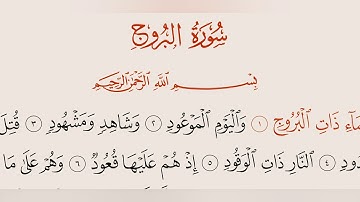 سُورَةُ البُرُوجِ
بِسْمِ اللَّهِ الرَّحْمَٰنِ الرَّحِيمِ
ذَاتِ الْبُرُوجِ ١ وَالْيَوْمِ الْمَوْعُودِ ٢ وَشَاهِدٍ وَمَشْهُودٍ ٣ قُتِلَ
النَّارِ ذَاتِ الْوَقُودِ ٥ إِذْ هُمْ عَلَيْهَا قُعُودٌ ٦ وَهُمْ عَلَىٰ مَا